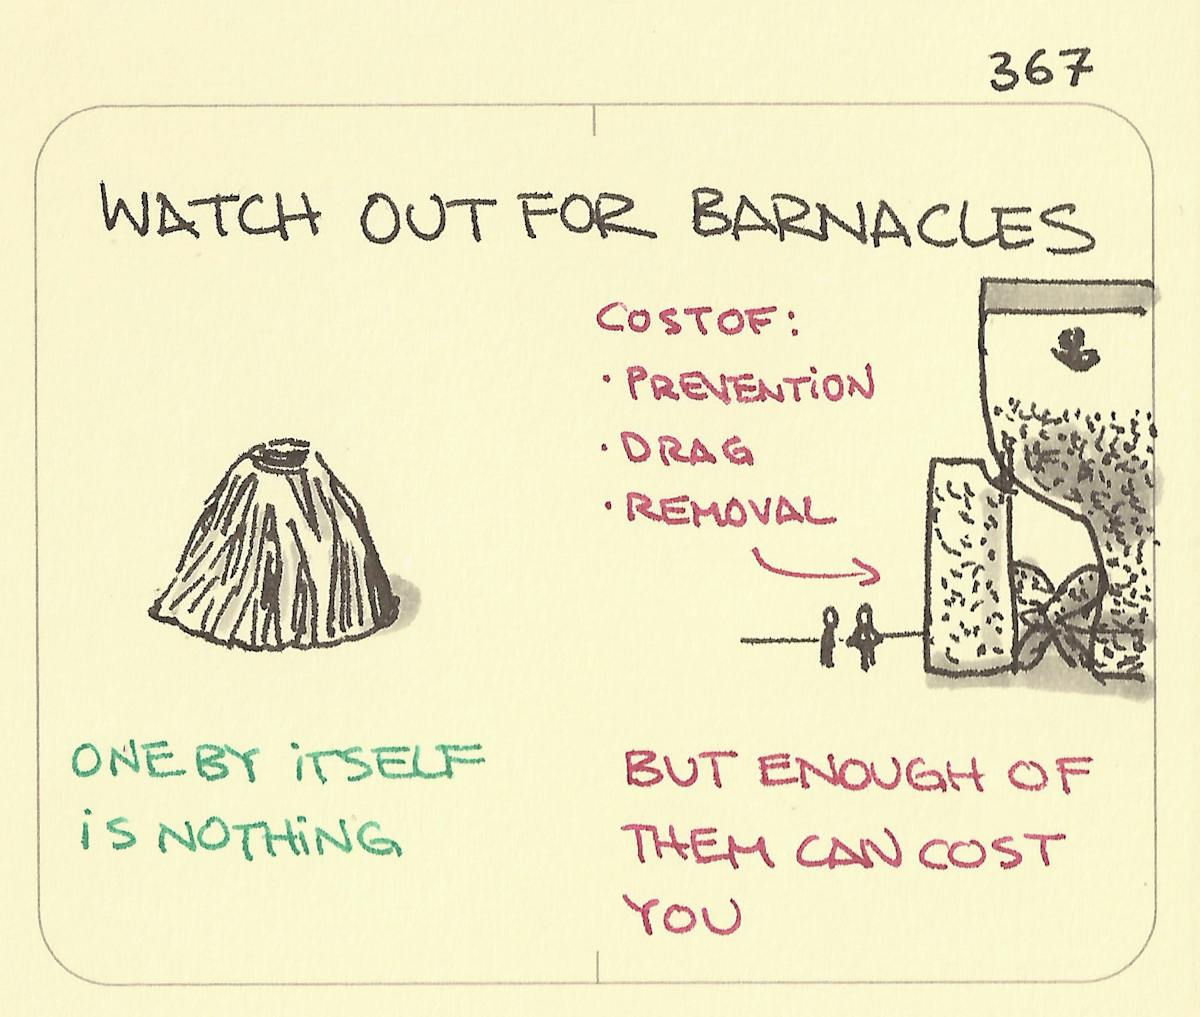 367
WATCH OUT FOR BARNACLES
COST OF:
• PREVENTION
• DRAG
• REMOVAL
ONE BY ITSELF
IS NOTHING
BUT ENOUGH OF
THEM CAN COST
YOU